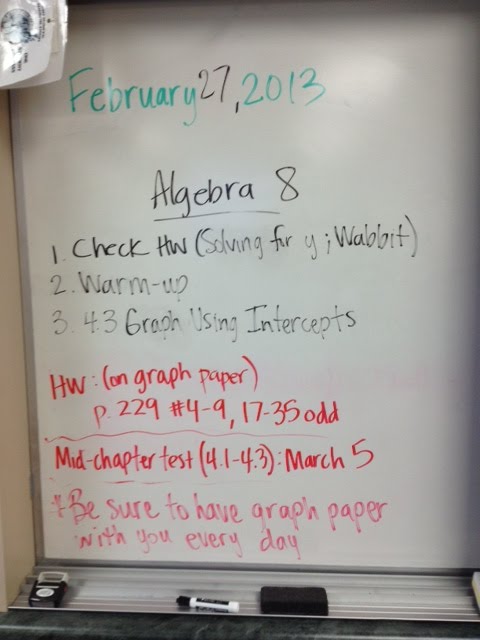 February 27, 2013
Algebra 8
1. Check HW (Solving for y; Wabbit)
2. Warm-up
3. 4.3 Graph Using Intercepts
HW: (on graph paper)
p. 229 #4-9, 17-35 odd
Mid-chapter test (4.1-4.3): March 5
* Be sure to have graph paper
with you every day